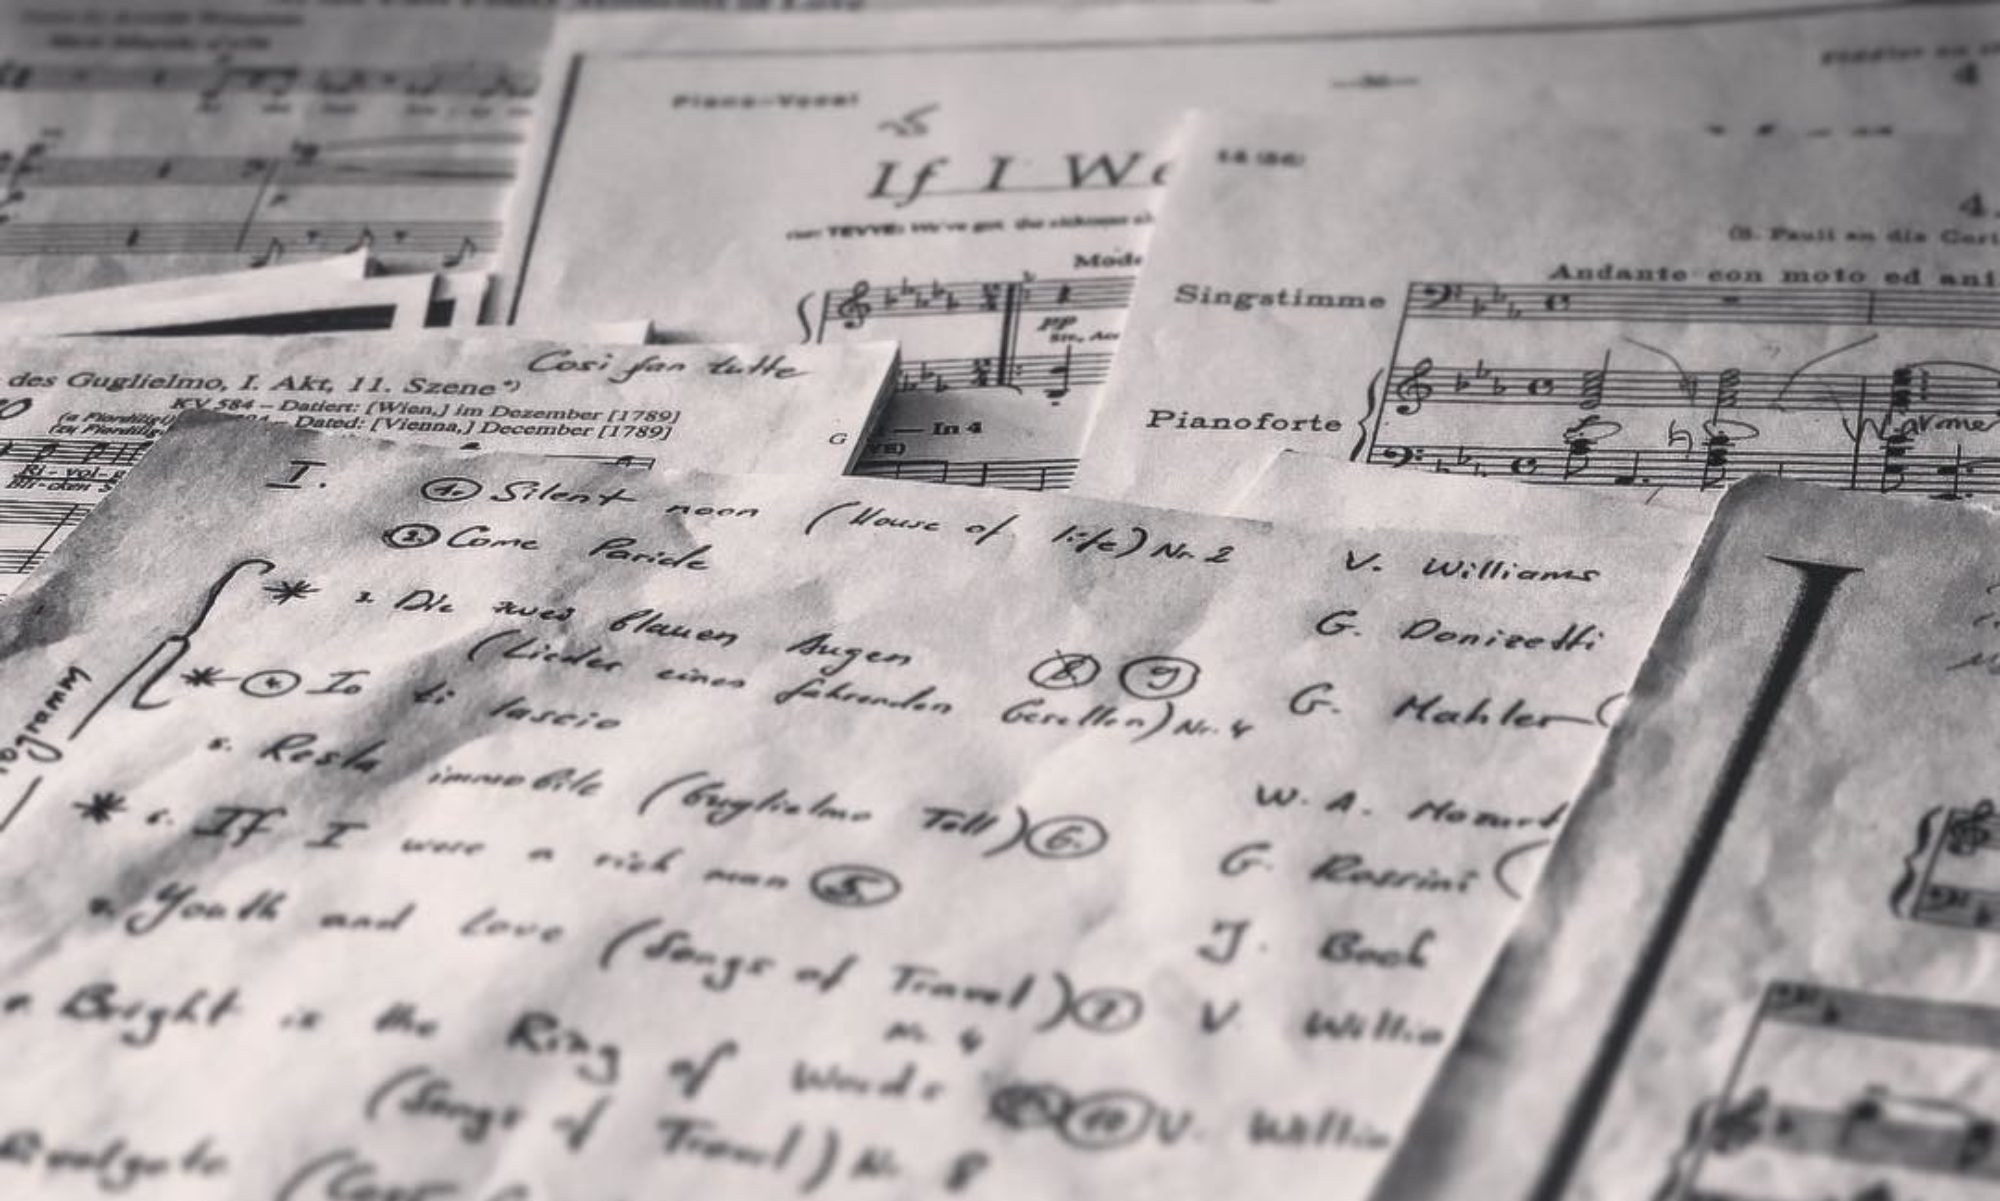 Piano-Vocal
If I We
TEVYE: We've got the
Mode
pp
In 4
14 (34)
4
4.
(S. Pauli an die Cori
Andante con moto ed ani
Singstimme
Pianoforte
Warme
Così fan tutte
des Guglielmo, I. Akt, 11. Szene*)
KV 584 – Datiert: [Wien,] im Dezember [1789]
Dated: [Vienna,] December [1789]
G
I.
1. Silent noon (House of life) Nr. 2 V. Williams
2. Come Paride G. Donizetti
* 3. Die zwei blauen Augen 8 9
(Lieder eines fahrenden Gesellen) Nr. 4 G. Mahler (
* 4. Io ti lascio W. A. Mozart
5. Resta immobile (Guglielmo Tell) 6. G. Rossini (
* 6. If I were a rich man 5. J. Bock
7. Youth and Love (Songs of Travel) 7 V Willia
Nr. 4
8. Bright is the Ring of Words 10 V. Willia
(Songs of Travel) Nr. 8
Rivolgete (Così
ogramm